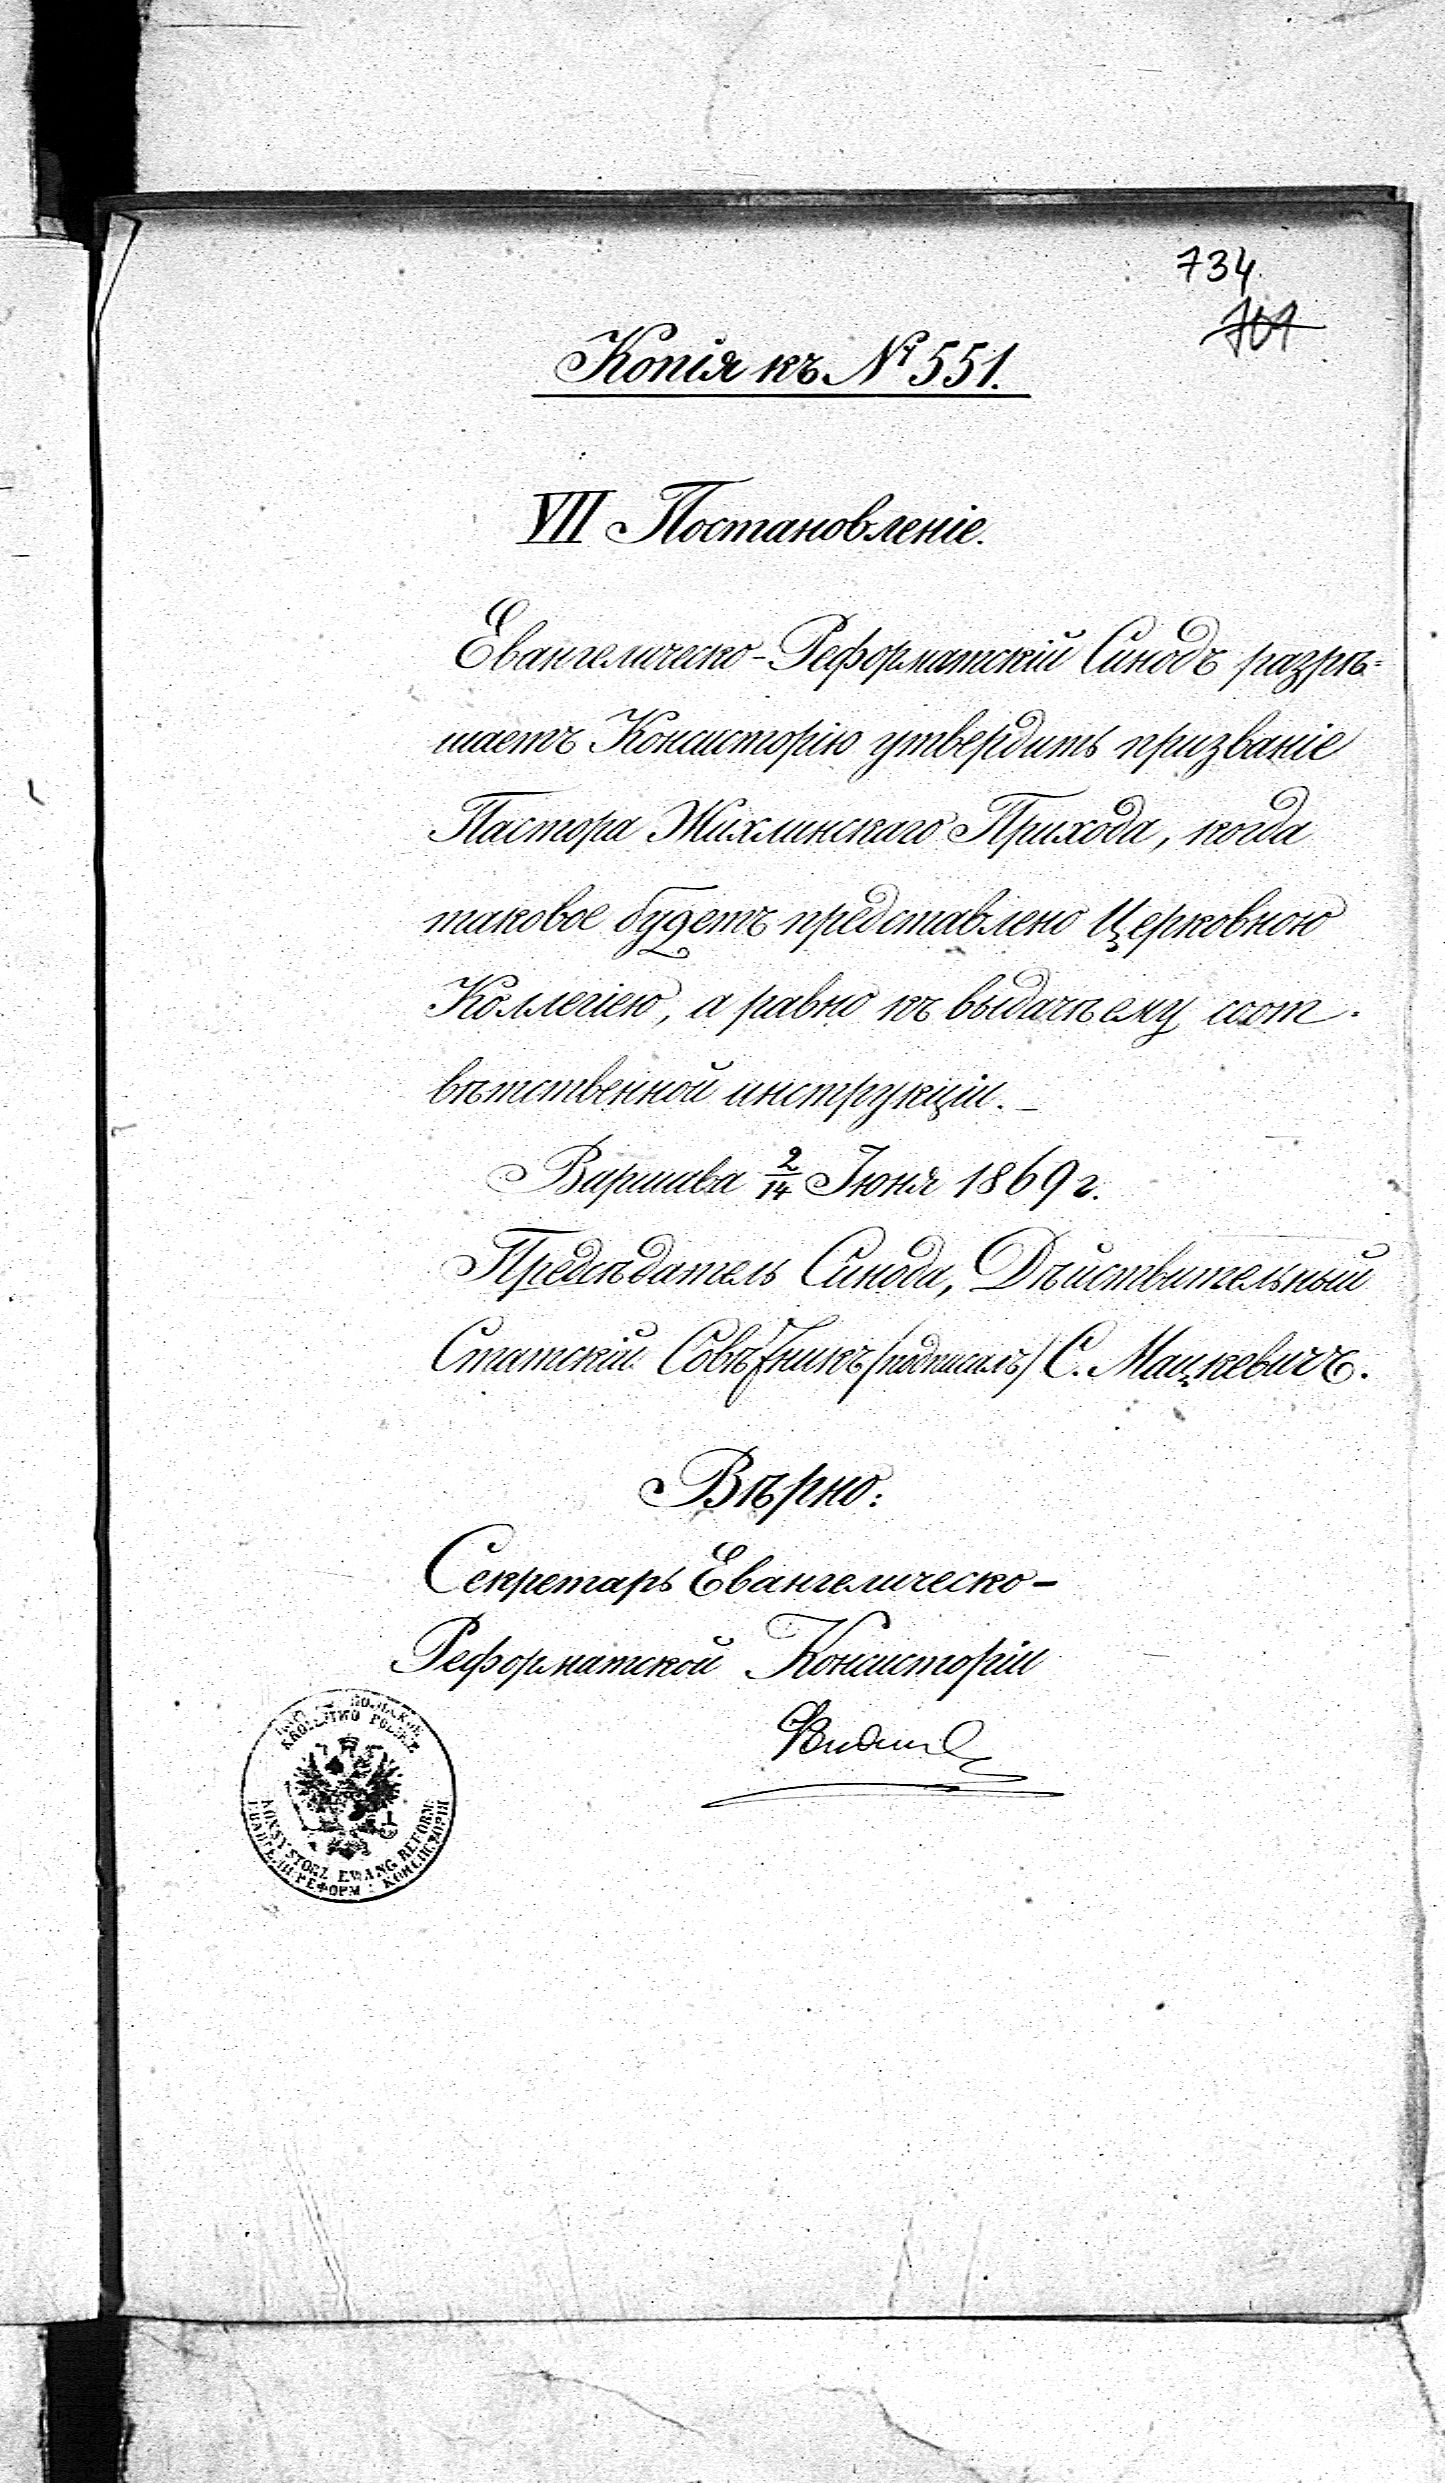 734
701
Копія къ № 551.
VII Постановленіе.
Евангелическо-Реформатскій Синодъ разрѣ=
шаетъ Консисторію утвердить призваніе
Пастора Жихлинскаго Прихода, когда
таковое будетъ представлено Церковною
Коллегіею, а равно къ выдачѣ ему соот-
вѣтственной инструкціи.
Варшава 2/14 Іюня 1869 г.
Предсѣдатель Синода, Дѣйствительный
Статскій Совѣтникъ (подписалъ) С. Мацкевичъ.
Вѣрно:
Секретарь Евангелическо-
Реформатской Консисторіи
KRÓLESTWO POLSKIE
KONSYSTORZ EWANG. REFORM.
РЕФОРМ. КОНСИСТОРІЯ